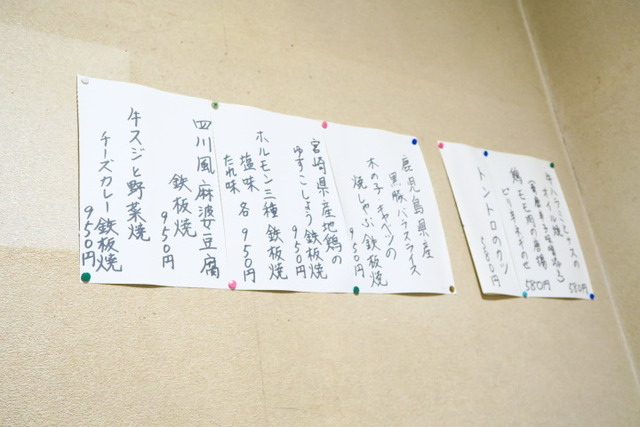 牛ハラミとナスの
580円
鶏モモ肉の唐揚
ピリ辛ネギのせ
580円
トントロのクワ
580円
鹿児島県産
黒豚バラスライス
木の子・キャベツの
焼しゃぶ鉄板焼
950円
宮崎県産地鶏の
ゆずこしょう鉄板焼
950円
ホルモン三種 鉄板焼
塩味 各950円
たれ味
四川風麻婆豆腐
鉄板焼
950円
牛スジと野菜焼
チーズカレー鉄板焼
950円